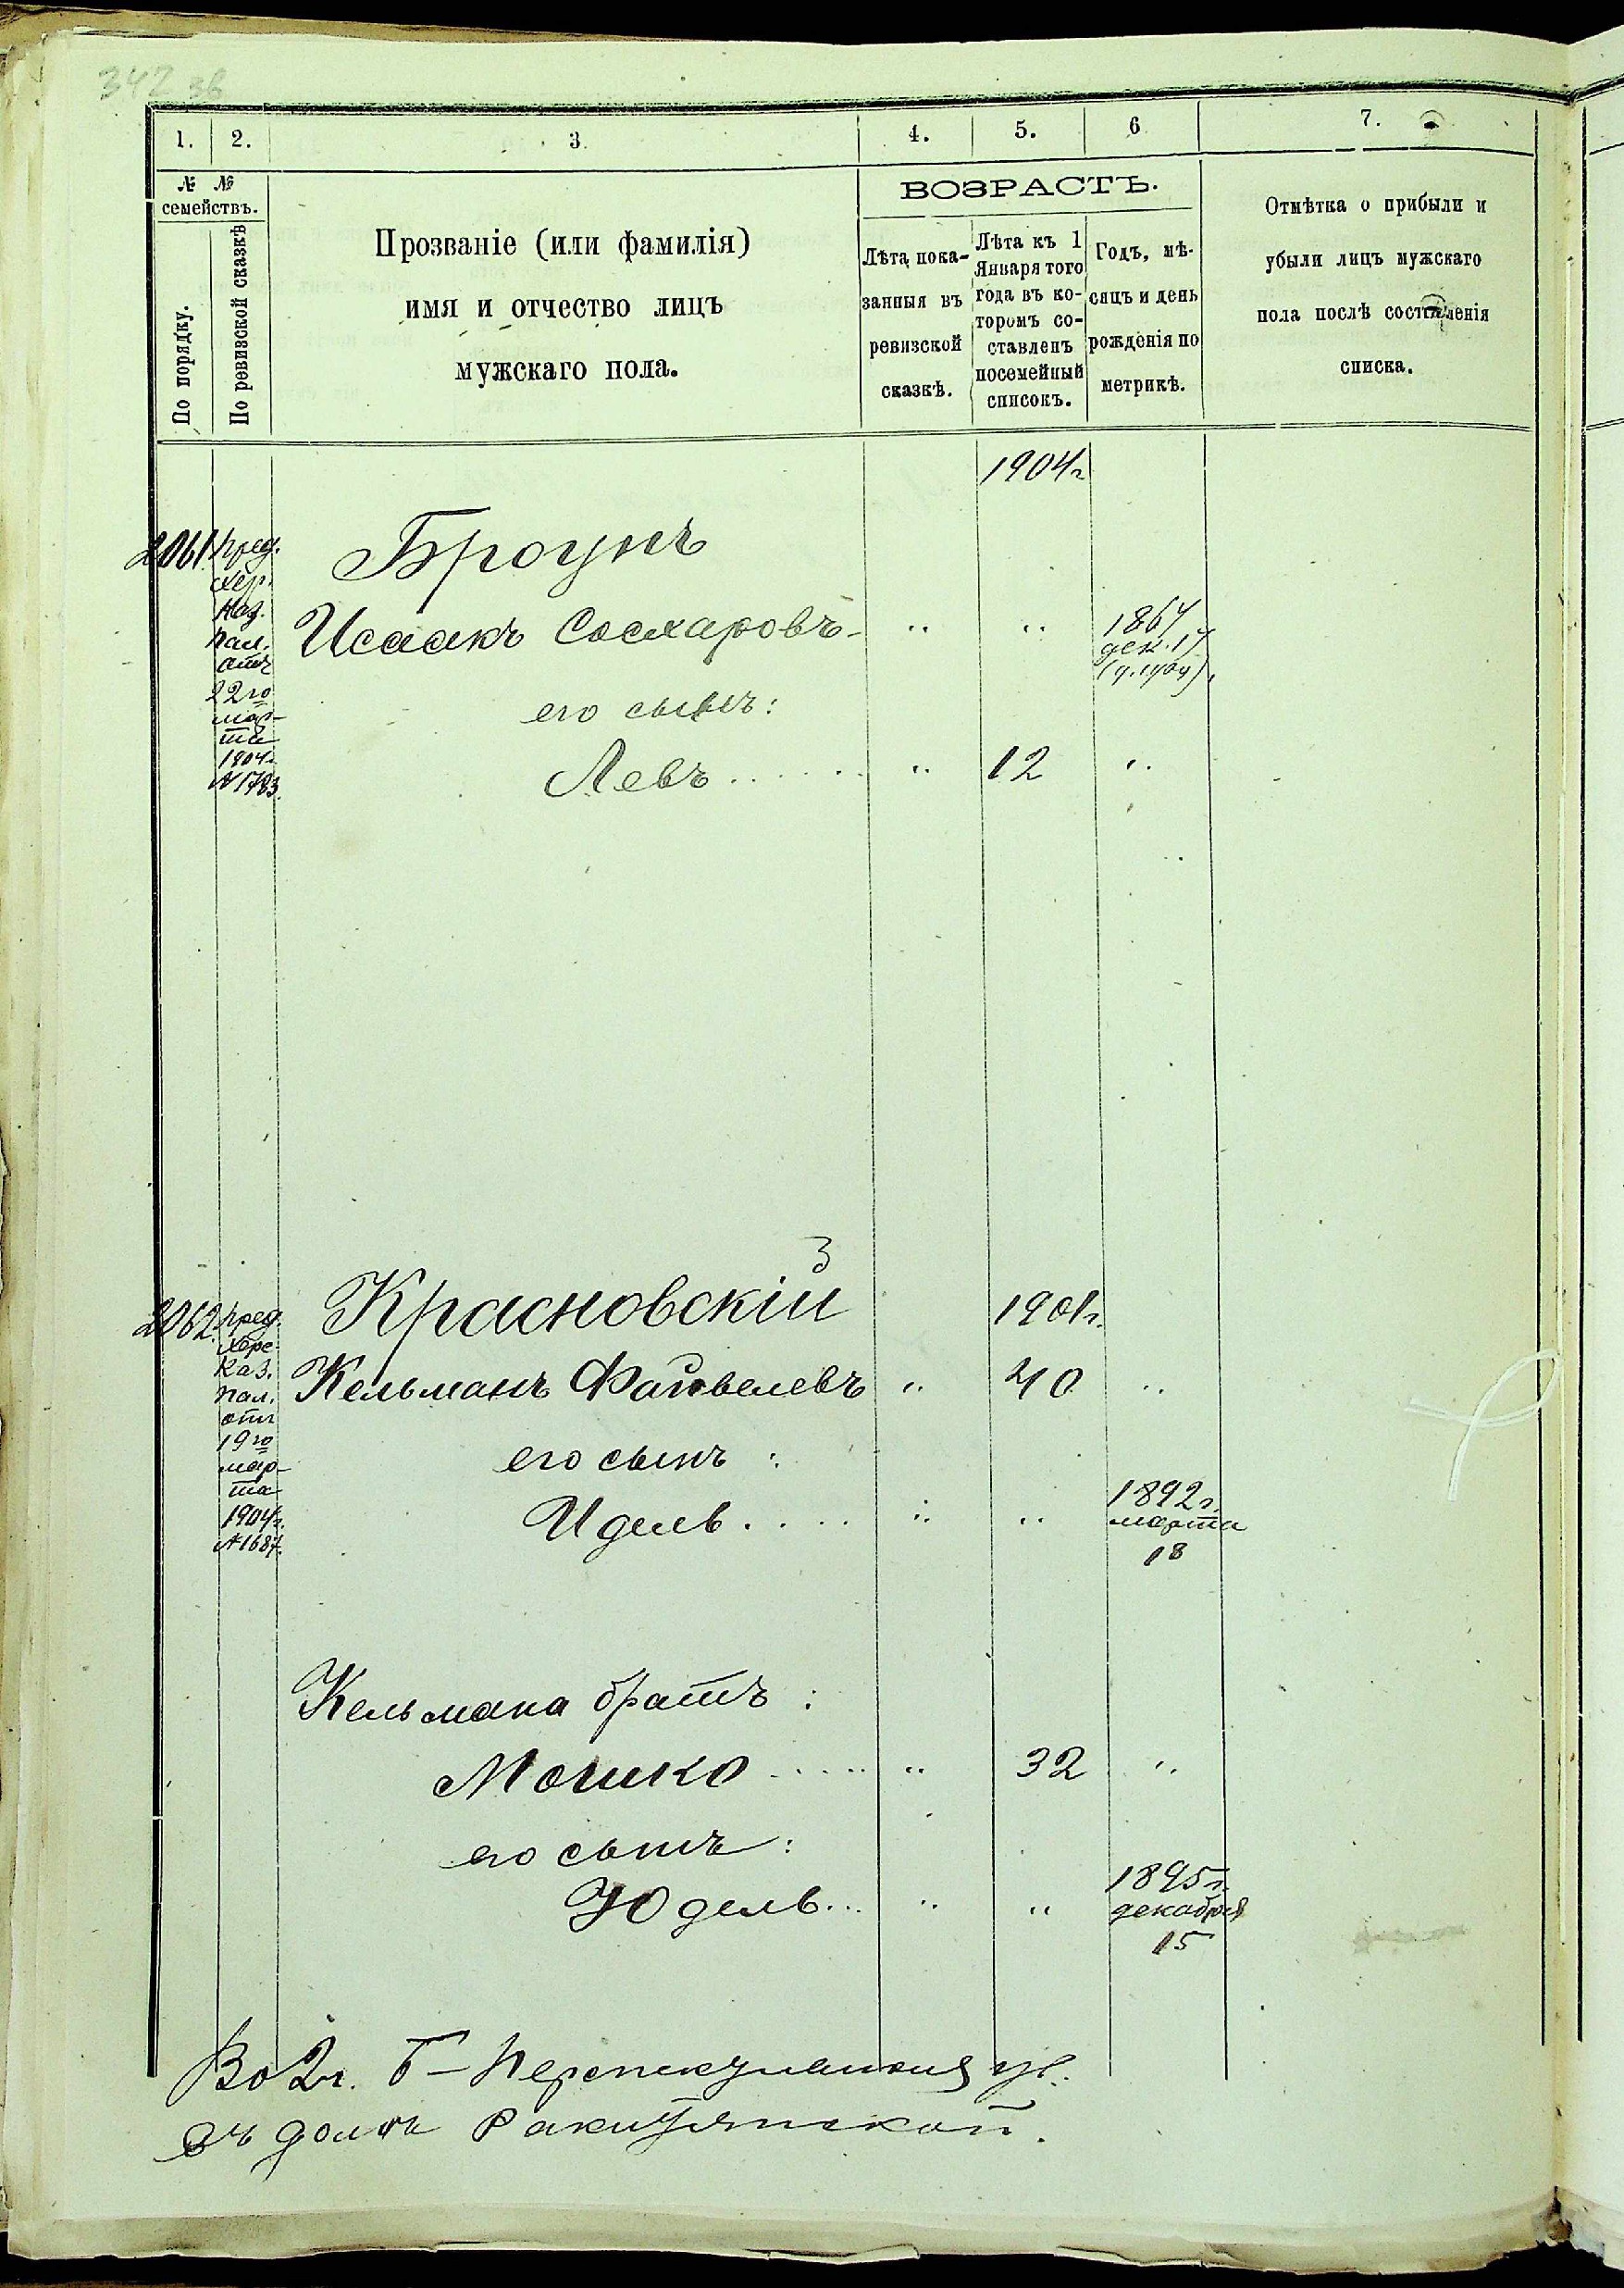 342 зв
1. 2. 3. 4. 5. 6 7.
№ № семействъ.
По порядку.
По ревизской сказкѣ
Прозваніе (или фамилія)
имя и отчество лицъ
мужскаго пола.
ВОЗРАСТЪ.
Лѣта пока-
занныя въ
ревизской
сказкѣ.
Лѣта къ 1
Января того
года въ ко-
торомъ со-
ставленъ
посемейный
списокъ.
Годъ, мѣ-
сяцъ и день
рожденія по
метрикѣ.
Отмѣтка о прибыли и
убыли лицъ мужскаго
пола послѣ составленія
списка.
1904г
2061. пред.
Хер.
Каз.
пал.
отъ
22го
мар-
та
1904г.
№ 1783.
Броунъ
Исаакъ
1864
дек. 17
его сынъ:
Левъ 12
3
2062. пред.
Хере
Каз.
пал.
отъ
19го
мар-
та
1904г.
№ 1687.
Красновскій 1901г.
Кельманъ Файвелевъ 40
его сынъ:
Идель 1892г.
марта
18
Кельмана братъ:
Мошко 32
его сынъ:
Юдель 1895г.
декабря
15
Во 2ч. Б- ул.
въ домѣ